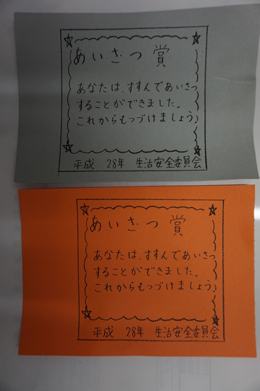 あいさつ賞
あなたは、すすんであいさつ
することができました。
これからもつづけましょう
平成 28年 生活安全委員会
あいさつ賞
あなたは、すすんであいさつ
することができました。
これからもつづけましょう
平成 28年 生活安全委員会